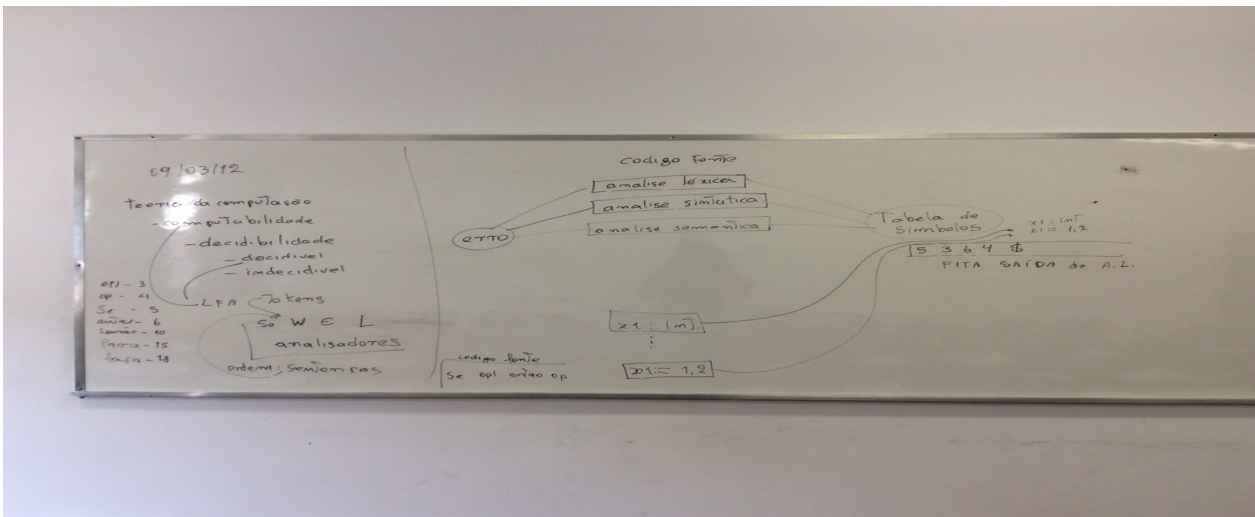 09/03/12
Teoria da computação
- computabilidade
- decidibilidade
- decidivel
- indecidivel
op1 - 3
op - 4
Se - 5
então - 6
senão - 10
Para - 15
faça - 18
LFA Tokens
Se W E L
analisadores
ordem: sentenças
codigo fonte
analise léxica
analise sintatica
analise semanica
erro
Tabela de
Simbolos
x1: int
x1:= 1,2
5 3 6 4 $
FITA SAÍDA do A.L.
x1: int
x1:= 1,2
codigo fonte
Se op1 então op